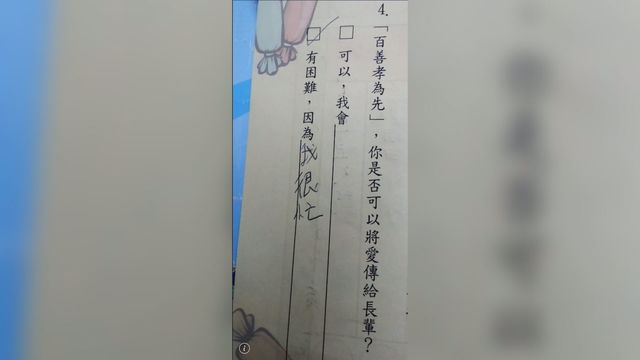 4.「百善孝為先」，你是否可以將愛傳給長輩？
□ 可以，我會
☑ 有困難，因為我很忙